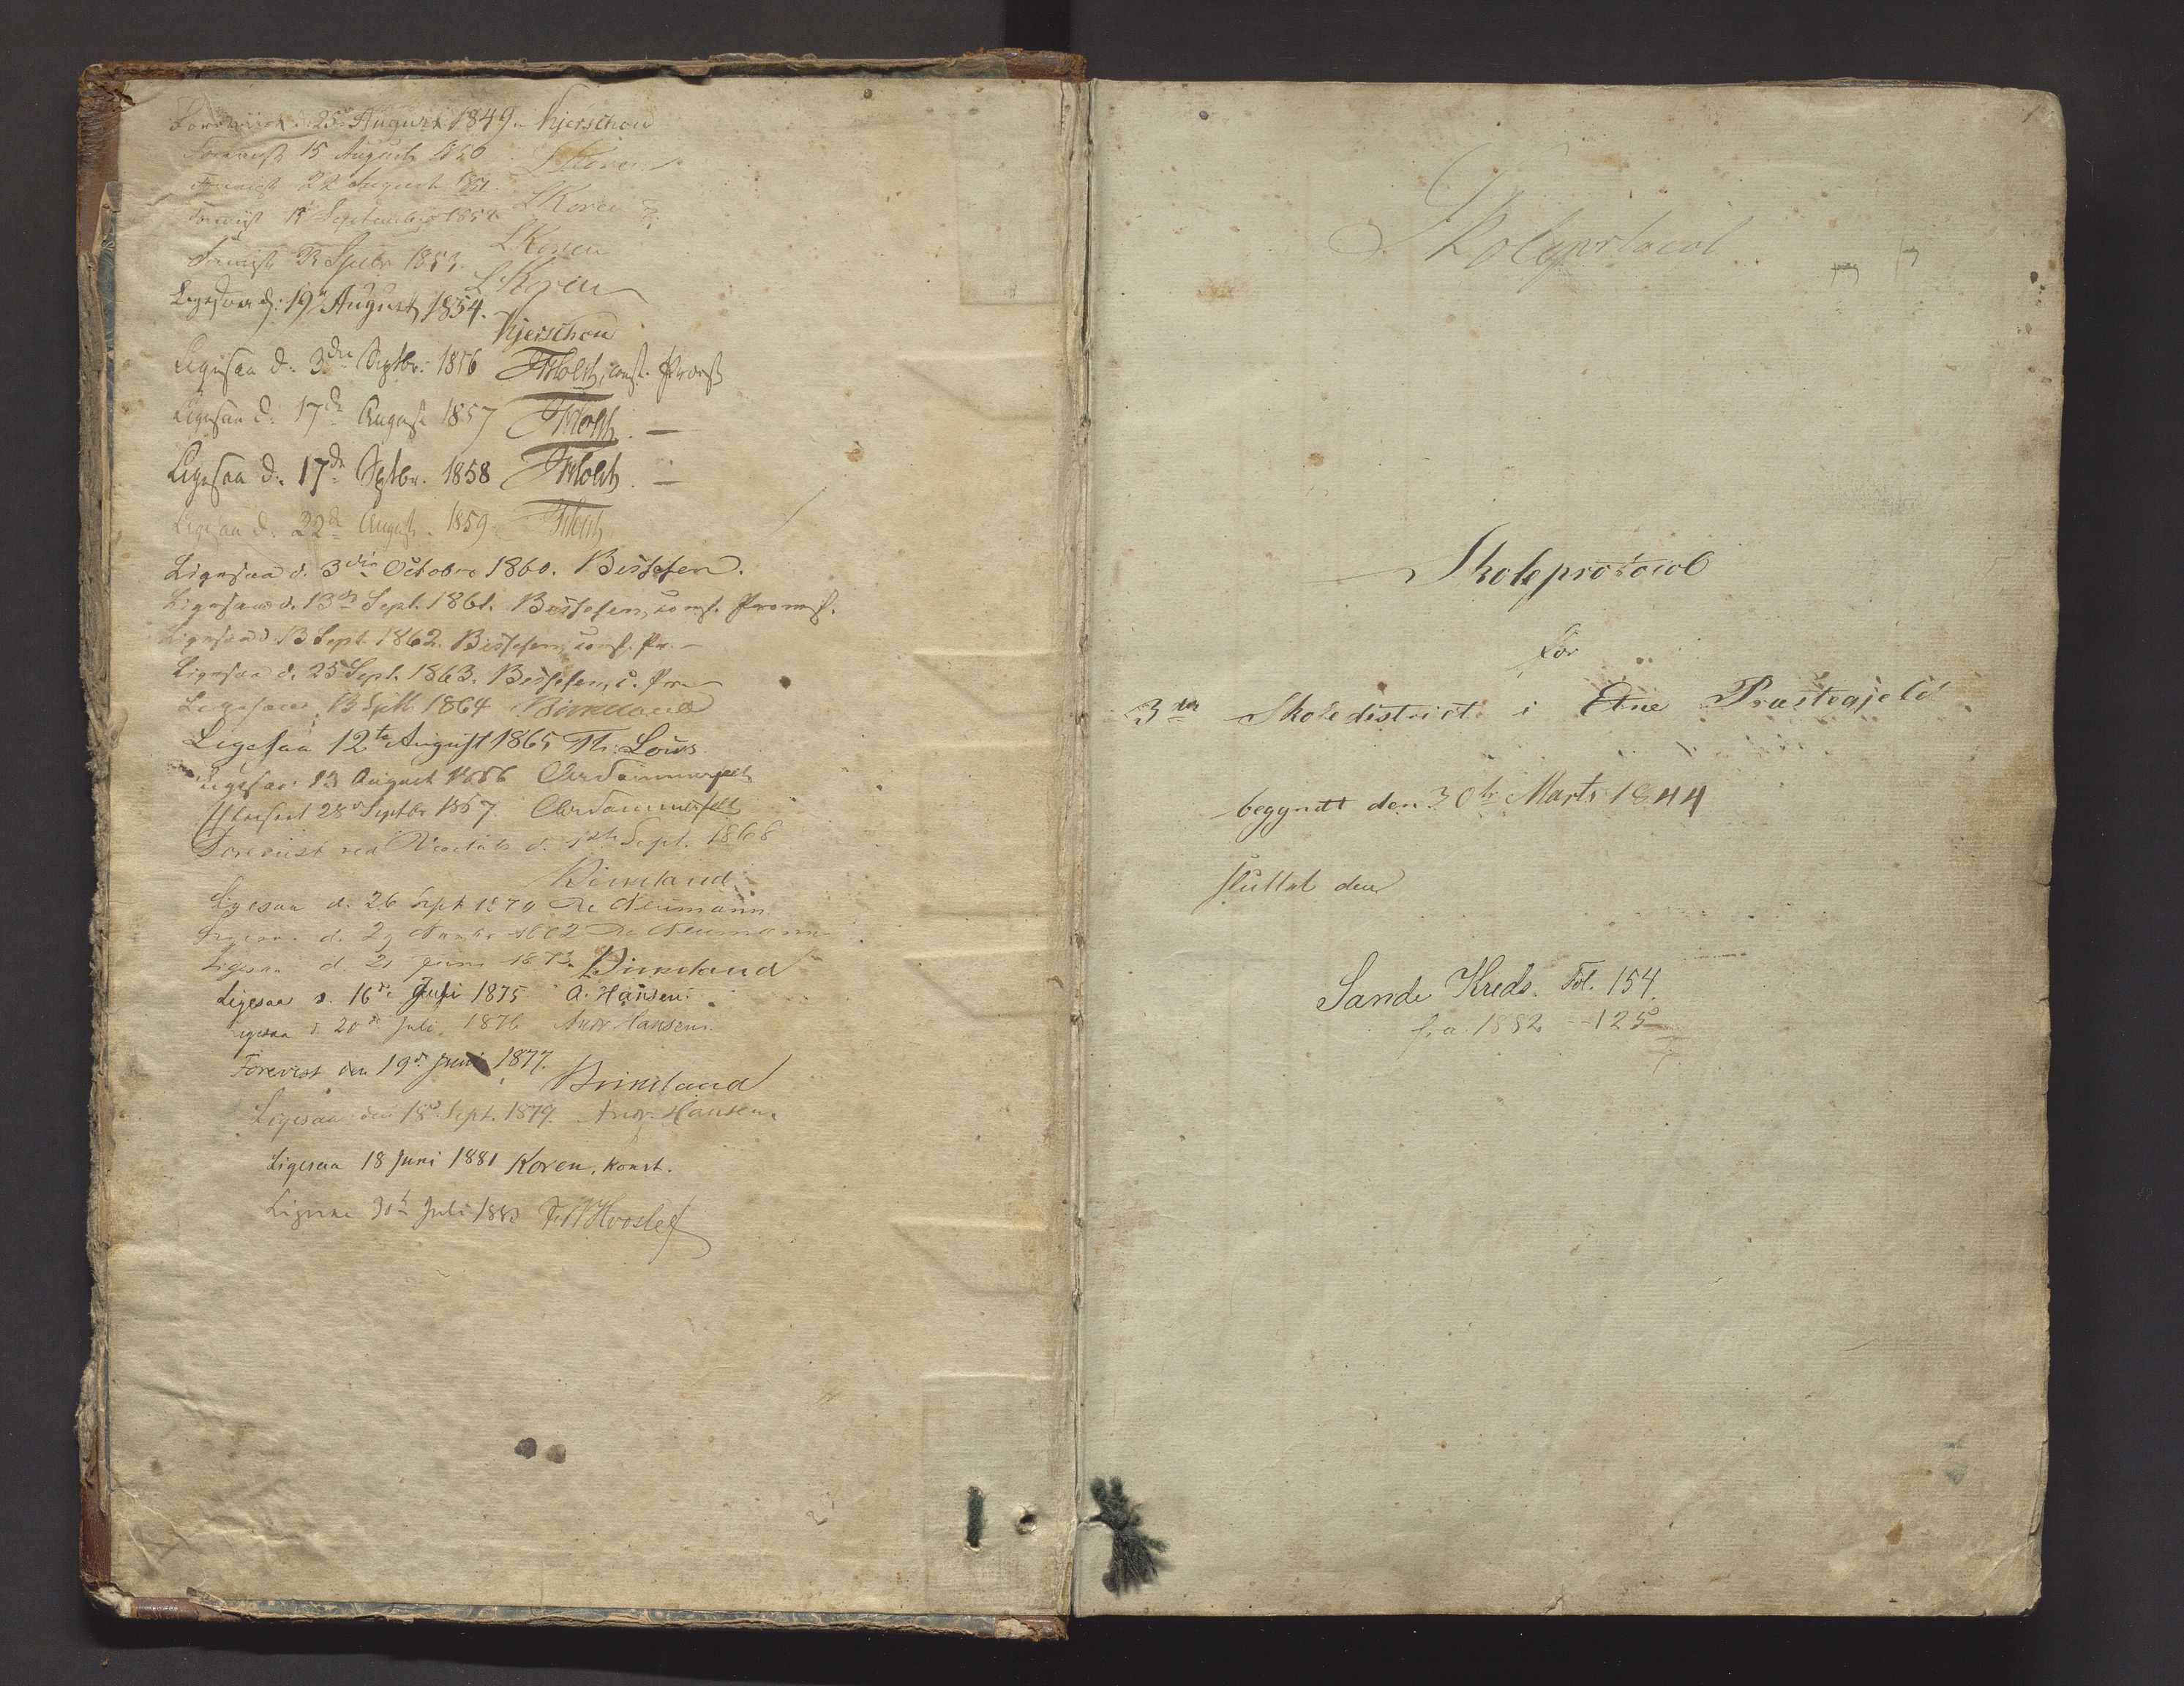 Foreviist d. 25 August 1849. Kjerschou
Foreviist 15 August 1850 L Koren
Foreviist 22 August 1851. L Koren
Foreviist September 1852 L Koren
Foreviist 1853. L Koren
Ligesaa d: 19 August 1854. Kjerschou
Ligesaa d. 3die Septbr. 1856 FMoltz, const. Provst
Ligesaa d. 17de August 1857 FMoltz. —
Ligesaa d. 17de Septbr. 1858 FMoltz. —
Ligesaa d. 22de August. 1859. FMoltz
Ligesaa d. 3die Octobre 1860. Beissesen.
Ligesaa d. 13de Sept. 1861. Beissesen, const. Provst.
Ligesaa d. 13 Sept. 1862. Beissesen, const. Pr. —
Ligesaa d. 25 Sept. 1863. Beissesen, c. Pr.
Ligesaa 13 Septb 1864 Birkeland
Ligesaa 12te August 1865 Th: Lous.
Ligesaa 13 August 1866 Chr Sommerfelt
Efterseet 28 Septbr 1867. Chr Sommerfelt
Foreviist ved Visitats d. Sept. 1868
Birkeland
Ligesaa d. 26 Sept 1870 Neumann
Ligesaa d. 2 1872 Neumann
Ligesaa d 21 Juni 1873 Birkeland
Ligesaa d. 16de Juli 1875 A. Hansen.
Ligesaa d. 20de Juli 1876 Andr. Hansen.
Forevist den 19de Juni 1877.
Birkeland
Ligesaa den 18de Sept. 1879. Andr. Hansen.
Ligesaa 18 Juni 1881 Koren, konst.
Ligesaa 30te Juli 1883 F.W. Hvoslef
1
Skoleprotocol
Skoleprotocol
for
3die Skoledistrict i Etne Præstegjeld
begyndt den 30te Marts 1844
sluttet den
Sande Kreds. Fol. 154.
fra 1882 — 125